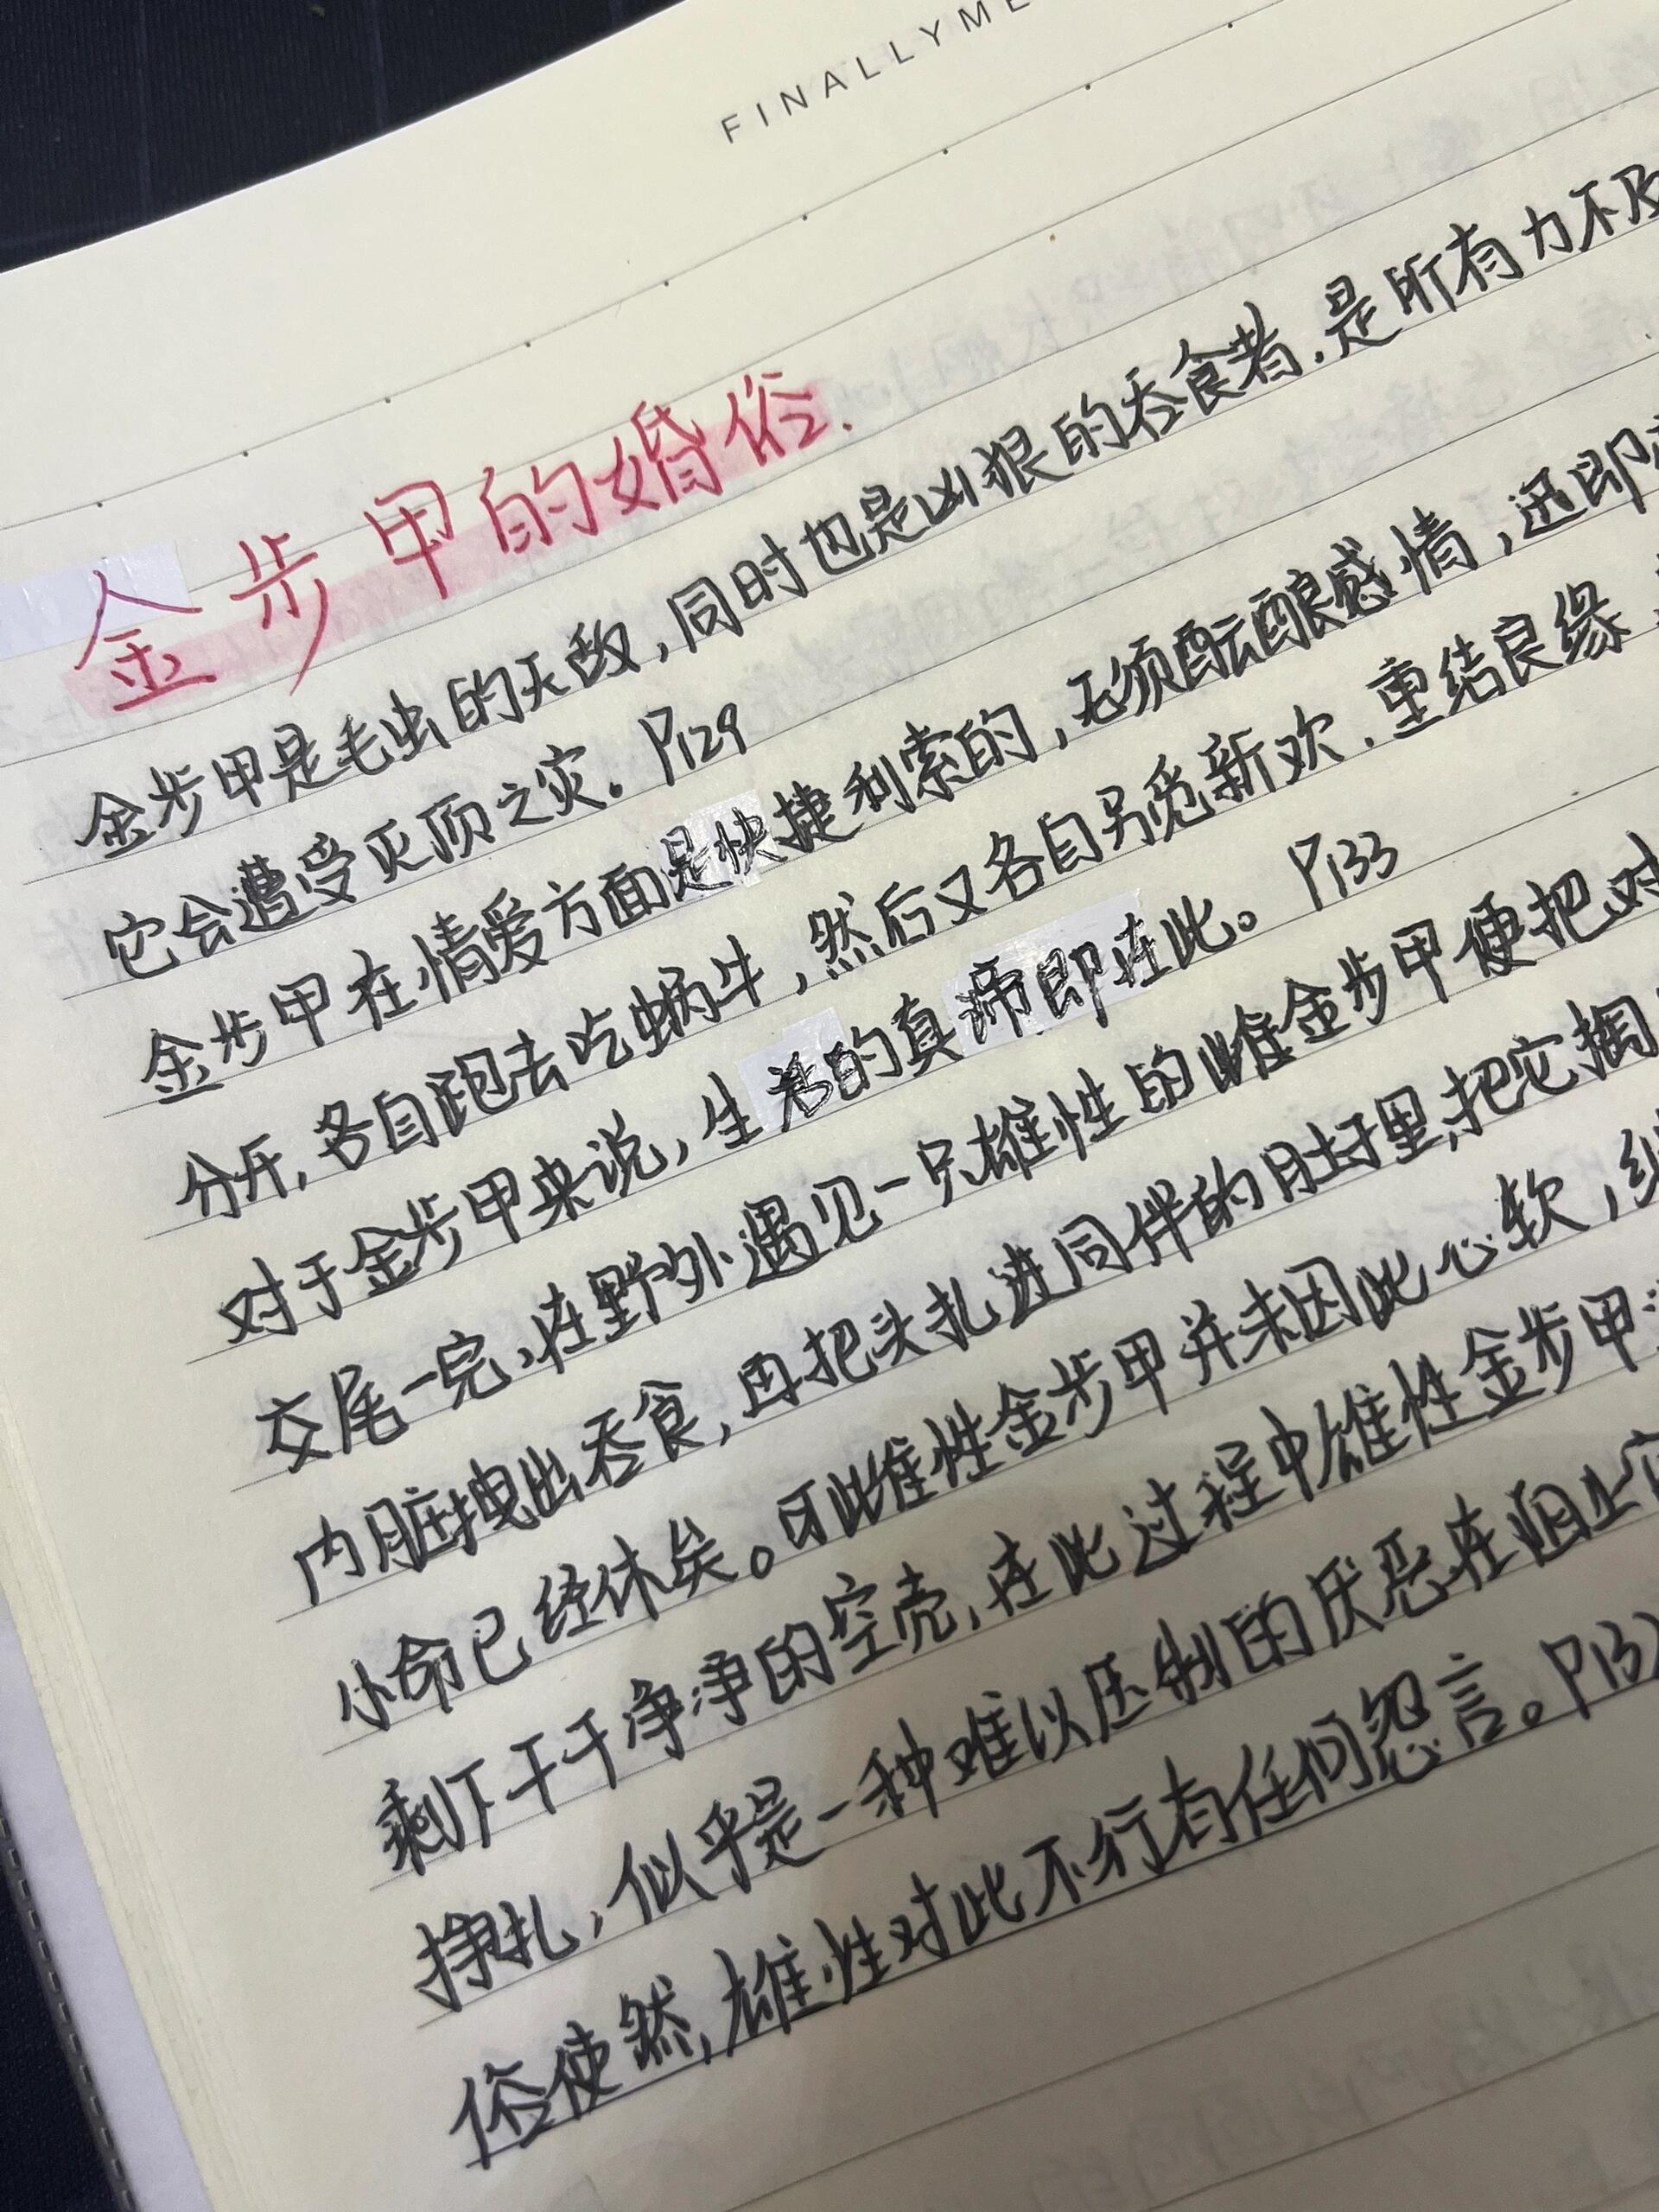 FINALLYME
金步甲的婚俗.
金步甲是毛虫的天敌,同时也是凶狠的吞食者.是所有力不及
它会遭受灭顶之灾。P129
金步甲在情爱方面是快捷利索的,无须酝酿感情,迅即
分开,各自跑去吃蜗牛,然后又各自另觅新欢.重结良缘,
对于金步甲来说,生活的真谛即在此。P133
交尾一完,在野外遇见一只雄性的雌金步甲便把对
内脏拽出吞食,再把头扎进同伴的肚子里,把它掏
小命已经休矣。可此雌性金步甲并未因此心软,
剩下干干净净的空壳,在此过程中雄性金步甲
挣扎,似乎是一种难以压制的厌恶在阻止
俗使然,雄性对此不行有任何怨言。P137